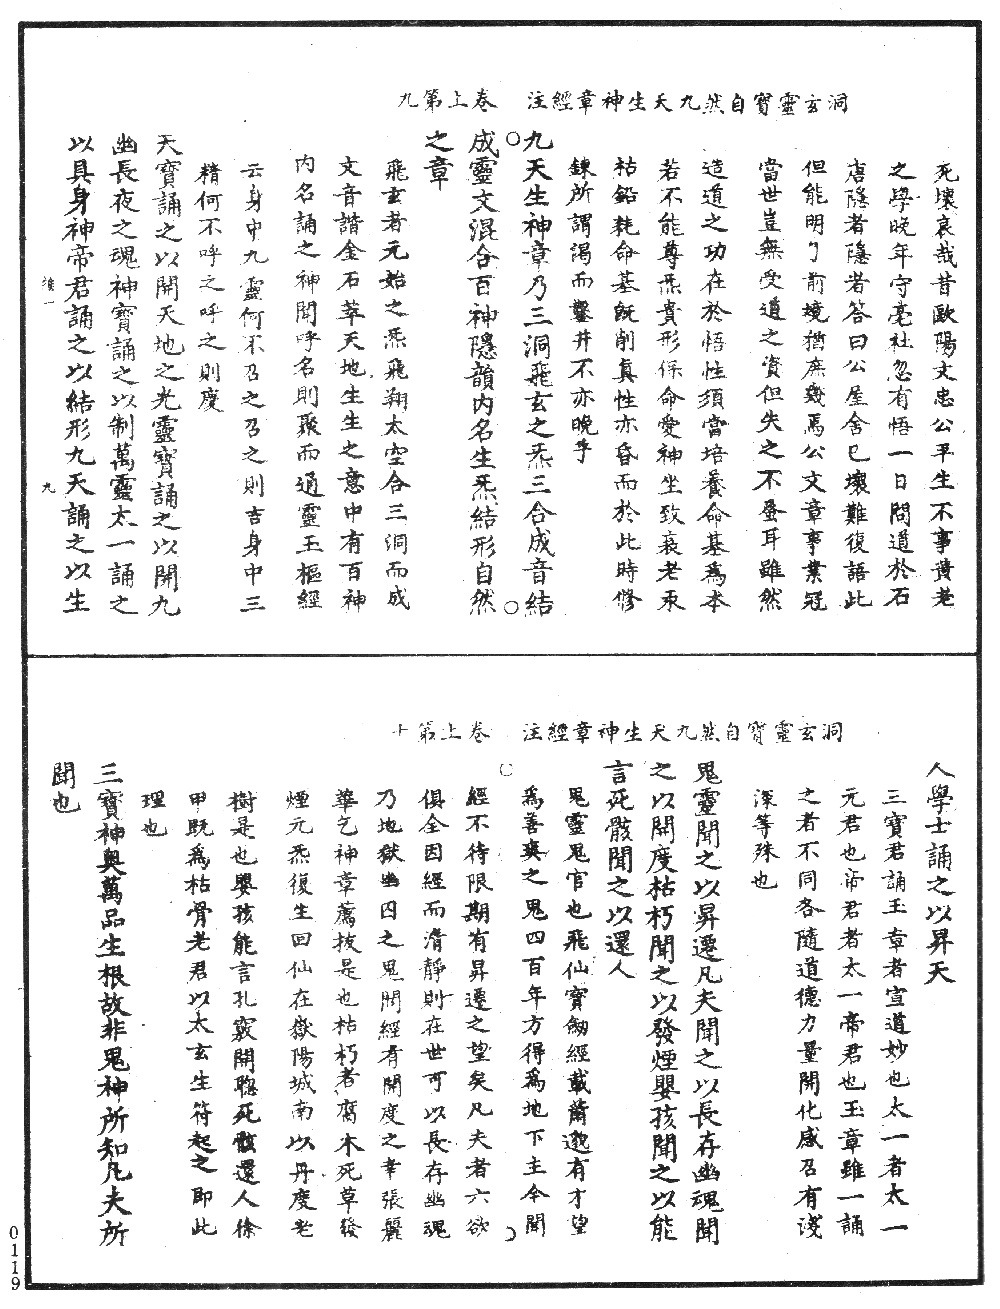 洞玄靈寶自然九天生神章經注　卷上第九
死壞哀哉昔歐陽文忠公平生不事黃老
之學晚年守亳社忽有悟一日問道於石
唐隱者隱者答曰公屋舍已壞難復語此
但能明了前境猶庶幾焉公文章事業冠
當世豈無受道之資但失之不蚤耳雖然
造道之功在於悟性須當培養命基爲本
若不能尊炁貴形保命愛神坐致衰老汞
枯鉛耗命基既削真性亦昏而於此時修
鍊所謂渴而鑿井不亦晚乎
九天生神章乃三洞飛玄之炁三合成音結
成靈文混合百神隱韻内名生炁結形自然
之章
飛玄者元始之炁飛翔太空合三洞而成
文音諧金石萃天地生生之意中有百神
内名誦之神聞呼名則聚而通靈玉樞經
云身中九靈何不召之召之則吉身中三
精何不呼之呼之則慶
天寶誦之以開天地之光靈寶誦之以開九
幽長夜之魂神寶誦之以制萬靈太一誦之
以具身神帝君誦之以結形九天誦之以生
維一
九
洞玄靈寶自然九天生神章經注　卷上第十
人學士誦之以昇天
三寶君誦玉章者宣道妙也太一者太一
元君也帝君者太一帝君也玉章雖一誦
之者不同各隨道德力量開化感召有淺
深等殊也
鬼靈聞之以昇遷凡夫聞之以長存幽魂聞
之以開度枯朽聞之以發煙嬰孩聞之以能
言死骸聞之以還人
鬼靈鬼官也飛仙寶劒經載蕭邈有才望
爲善爽之鬼四百年方得爲地下主今聞
經不待限期有昇遷之望矣凡夫者六欲
俱全因經而清靜則在世可以長存幽魂
乃地獄幽囚之鬼聞經有開度之幸張麗
華乞神章薦拔是也枯朽者腐木死草發
煙元炁復生回仙在嶽陽城南以丹度老
樹是也嬰孩能言孔竅開聰死骸還人徐
甲既爲枯骨老君以太玄生符起之即此
理也
三寶神奧萬品生根故非鬼神所知凡夫所
聞也
0119